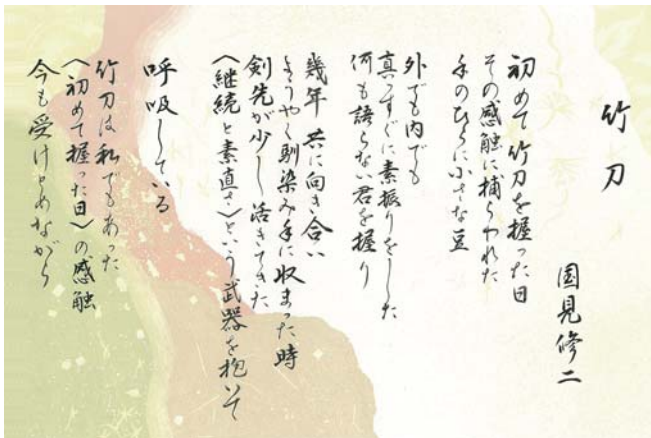 竹刀
国見修二
初めて竹刀を握った日
その感触に捕らわれた
手のひらに小さな豆
外でも内でも
真っすぐに素振りをした
何も語らない君を握り
幾年 共に向き合い
ようやく馴染み手に収まった時
剣先が少し活きてきた
〈継続と素直さ〉という武器を抱いて
呼吸している
竹刀は私でもあった
〈初めて握った日〉の感触
今も受けとめながら